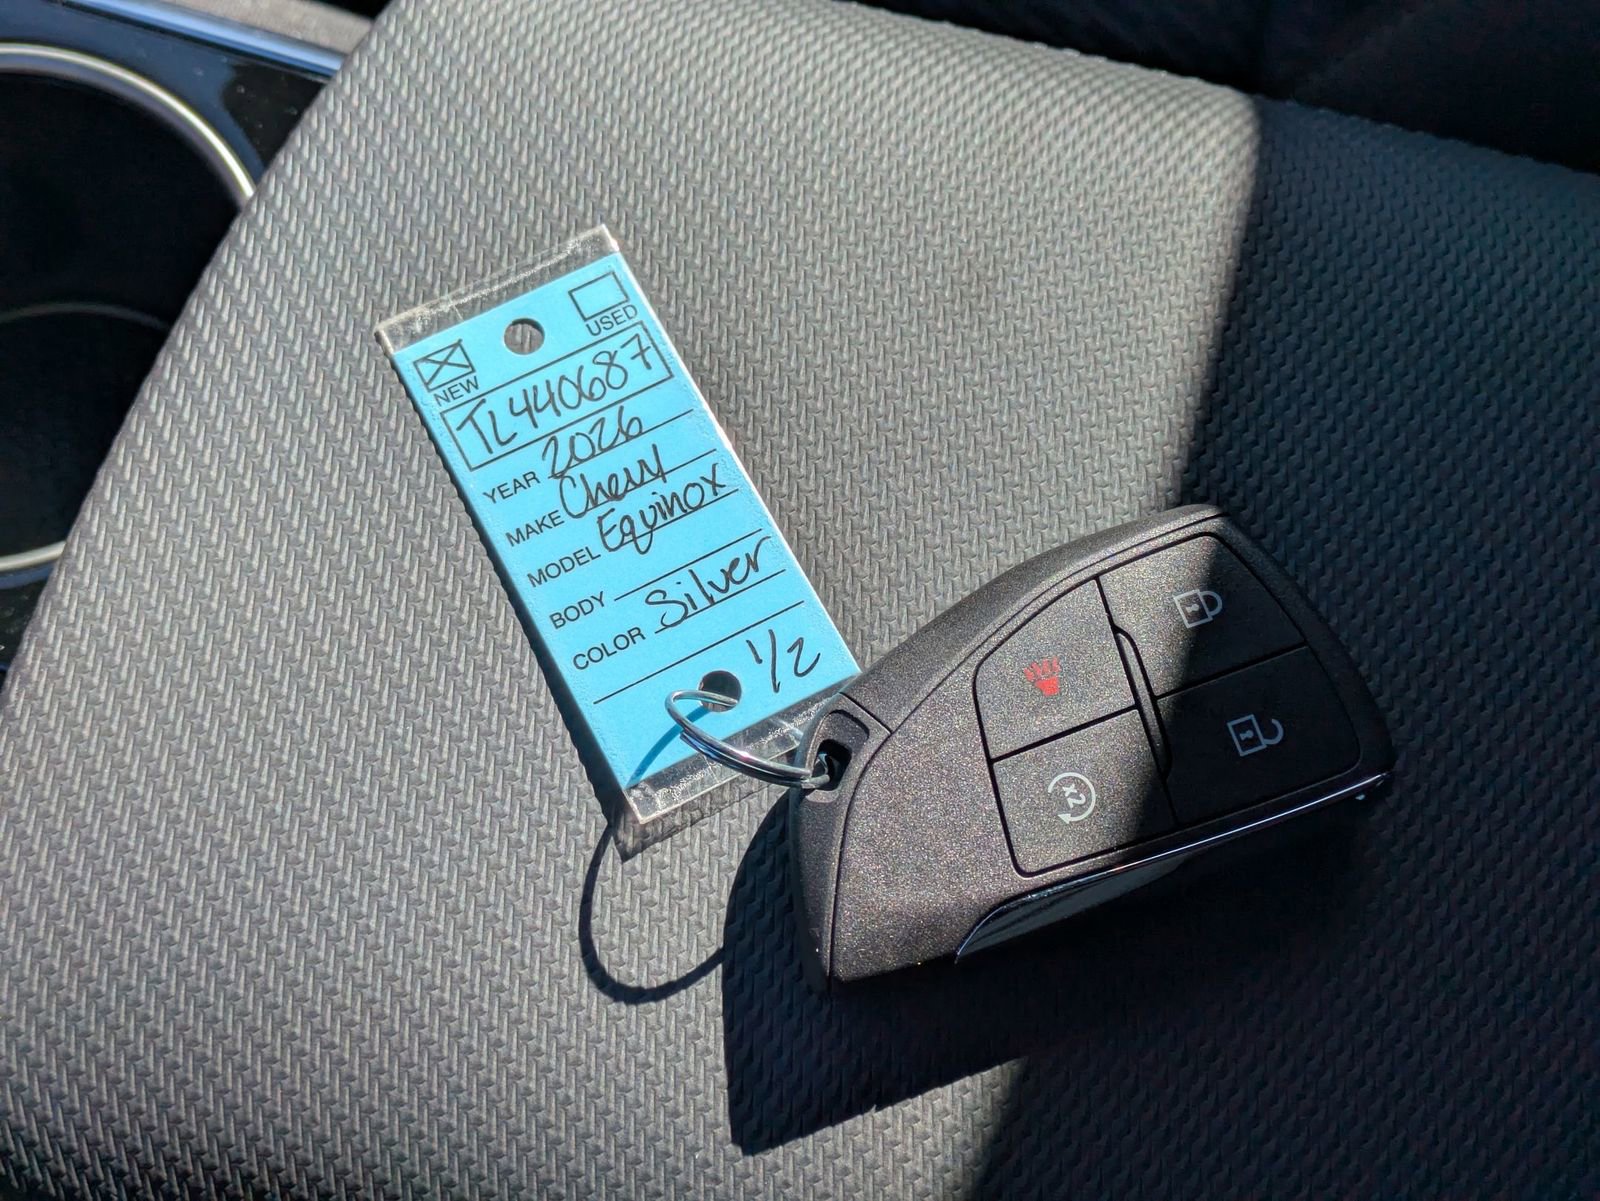 USED
NEW
TL440687
YEAR 2026
MAKE Chevy
MODEL Equinox
BODY
COLOR Silver
1/2
x2